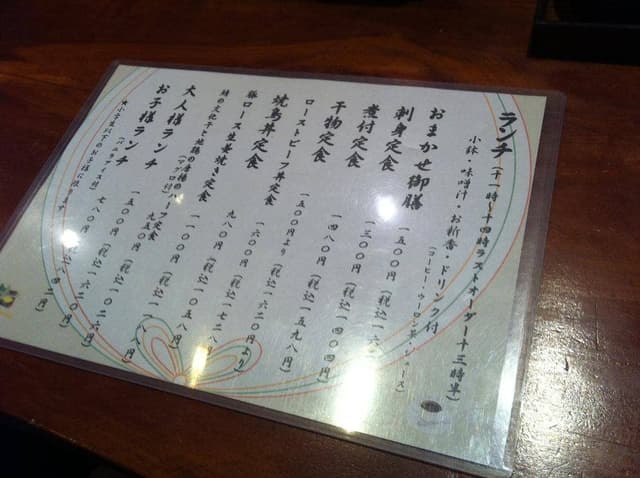 ランチ(十一時〜十四時ラストオーダー十三時半)
小鉢・味噌汁・お新香・ドリンク付
(コーヒー・ウーロン茶・ジュース)
おまかせ御膳 一五〇〇円(税込一六
刺身定食 一三〇〇円(税込一四〇四円)
煮付定食 一四八〇円(税込一五九八円)
干物定食 一五〇〇円より(税込一六二〇円より)
ローストビーフ丼定食 一六〇〇円(税込一七二八円)
焼鳥丼定食 九八〇円(税込一〇五八円)
豚ロース生姜焼き定食 一一〇〇円(税込一一八八円)
鯖の文化干と地鶏の唐揚のハーフ定食 九五〇円(税込一〇二六円)
大人様ランチ(マグロ付) 一五〇〇円(税込
お子様ランチ(バニラアイス付) 七八〇円(税込
※小学生以下のお子様に限ります